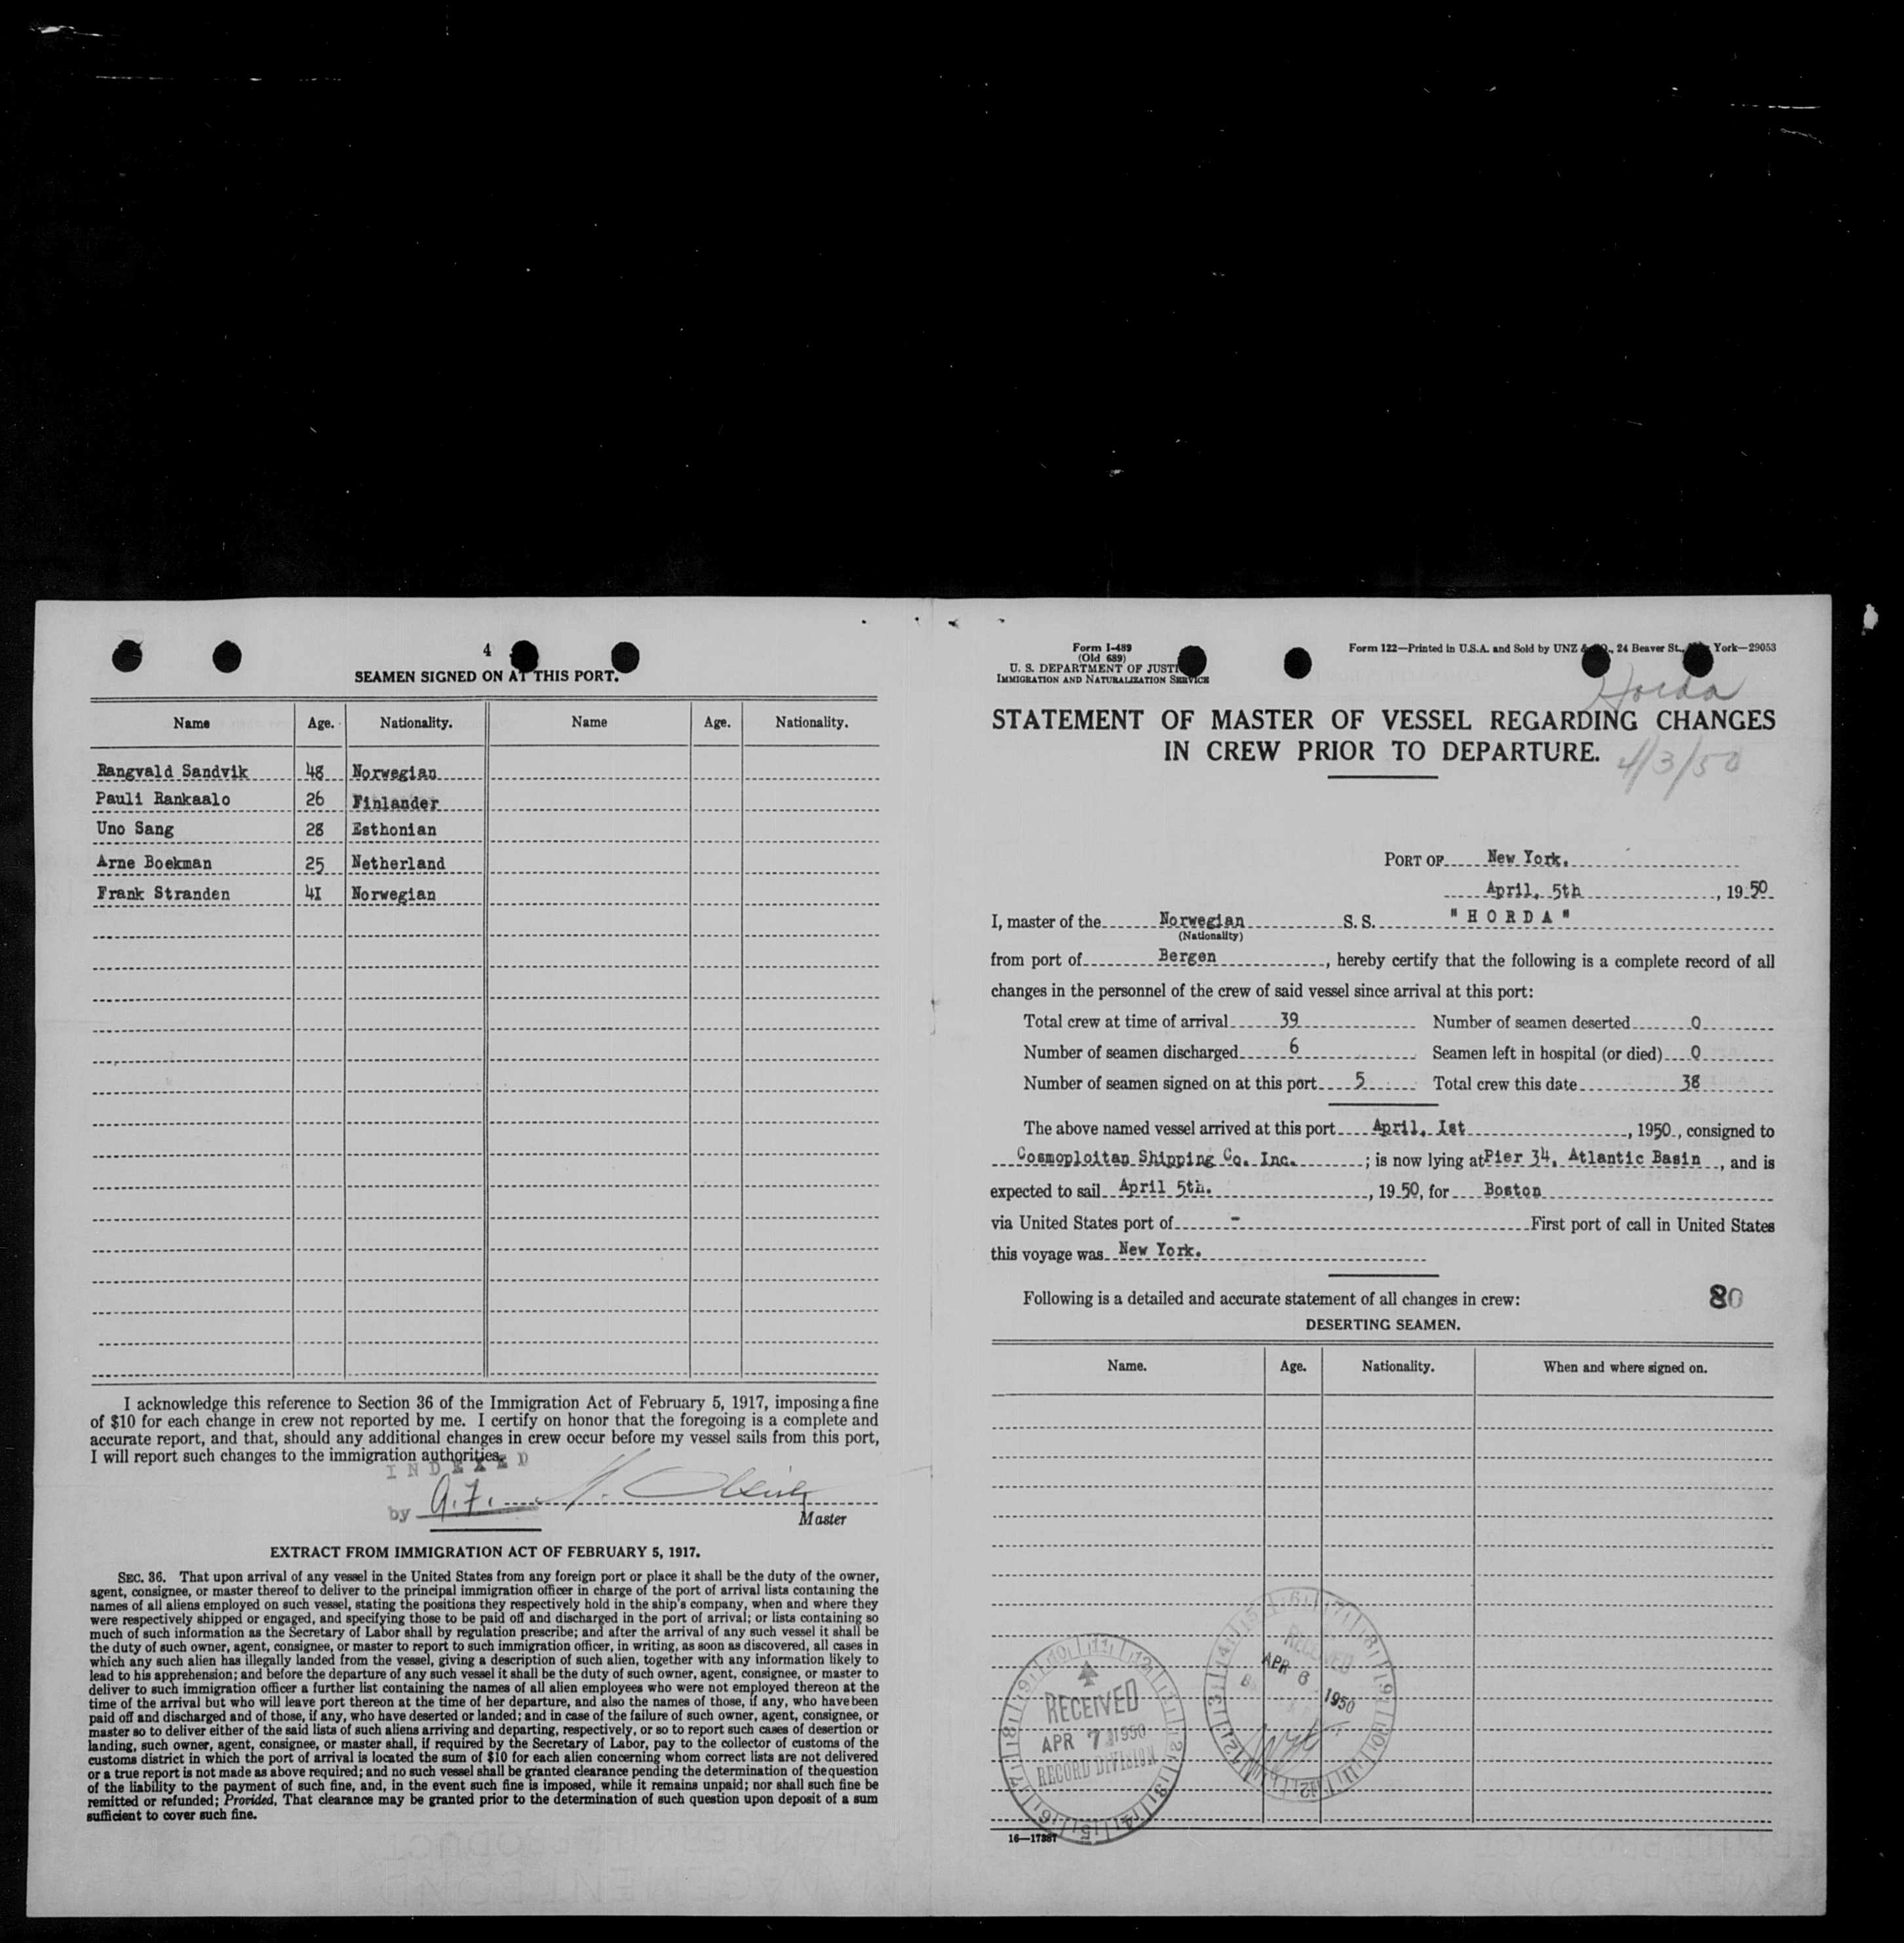 4
SEAMEN SIGNED ON AT THIS PORT.
Name Age. Nationality. Name Age. Nationality.
Rangvald Sandvik 48 Norwegian
Pauli Rankaalo 26 Finlander
Uno Sang 28 Esthonian
Arne Boekman 25 Netherland
Frank Stranden 41 Norwegian
I acknowledge this reference to Section 36 of the Immigration Act of February 5, 1917, imposing a fine
of $10 for each change in crew not reported by me. I certify on honor that the foregoing is a complete and
accurate report, and that, should any additional changes in crew occur before my vessel sails from this port,
I will report such changes to the immigration authorities.
INDEXED
by
Master
EXTRACT FROM IMMIGRATION ACT OF FEBRUARY 5, 1917.
SEC. 36. That upon arrival of any vessel in the United States from any foreign port or place it shall be the duty of the owner,
agent, consignee, or master thereof to deliver to the principal immigration officer in charge of the port of arrival lists containing the
names of all aliens employed on such vessel, stating the positions they respectively hold in the ship's company, when and where they
were respectively shipped or engaged, and specifying those to be paid off and discharged in the port of arrival; or lists containing so
much of such information as the Secretary of Labor shall by regulation prescribe; and after the arrival of any such vessel it shall be
the duty of such owner, agent, consignee, or master to report to such immigration officer, in writing, as soon as discovered, all cases in
which any such alien has illegally landed from the vessel, giving a description of such alien, together with any information likely to
lead to his apprehension; and before the departure of any such vessel it shall be the duty of such owner, agent, consignee, or master to
deliver to such immigration officer a further list containing the names of all alien employees who were not employed thereon at the
time of the arrival but who will leave port thereon at the time of her departure, and also the names of those, if any, who have been
paid off and discharged and of those, if any, who have deserted or landed; and in case of the failure of such owner, agent, consignee, or
master so to deliver either of the said lists of such aliens arriving and departing, respectively, or so to report such cases of desertion or
landing, such owner, agent, consignee, or master shall, if required by the Secretary of Labor, pay to the collector of customs of the
customs district in which the port of arrival is located the sum of $10 for each alien concerning whom correct lists are not delivered
or a true report is not made as above required; and no such vessel shall be granted clearance pending the determination of the question
of the liability to the payment of such fine, and, in the event such fine is imposed, while it remains unpaid; nor shall such fine be
remitted or refunded; Provided, That clearance may be granted prior to the determination of such question upon deposit of a sum
sufficient to cover such fine.
Form I-489
(Old 689)
U. S. DEPARTMENT OF JUSTICE
IMMIGRATION AND NATURALIZATION SERVICE
Form 122—Printed in U.S.A. and Sold by UNZ & CO., 24 Beaver St., New York—29053
Horda
STATEMENT OF MASTER OF VESSEL REGARDING CHANGES
IN CREW PRIOR TO DEPARTURE.
4/3/50
PORT OF New York.
April, 5th, 1950
I, master of the Norwegian S. S. "HORDA"
(Nationality)
from port of Bergen, hereby certify that the following is a complete record of all
changes in the personnel of the crew of said vessel since arrival at this port:
Total crew at time of arrival 39 Number of seamen deserted 0
Number of seamen discharged 6 Seamen left in hospital (or died) 0
Number of seamen signed on at this port 5 Total crew this date 38
The above named vessel arrived at this port April, Ist, 1950, consigned to
Cosmoploitan Shipping Co. Inc.; is now lying at Pier 34, Atlantic Basin, and is
expected to sail April 5th., 1950, for Boston
via United States port of - First port of call in United States
this voyage was New York.
Following is a detailed and accurate statement of all changes in crew: 80
DESERTING SEAMEN.
Name. Age. Nationality. When and where signed on.
RECEIVED
APR 7 1950
RECORD DIVISION
RECEIVED
APR 6 1950
16—17887